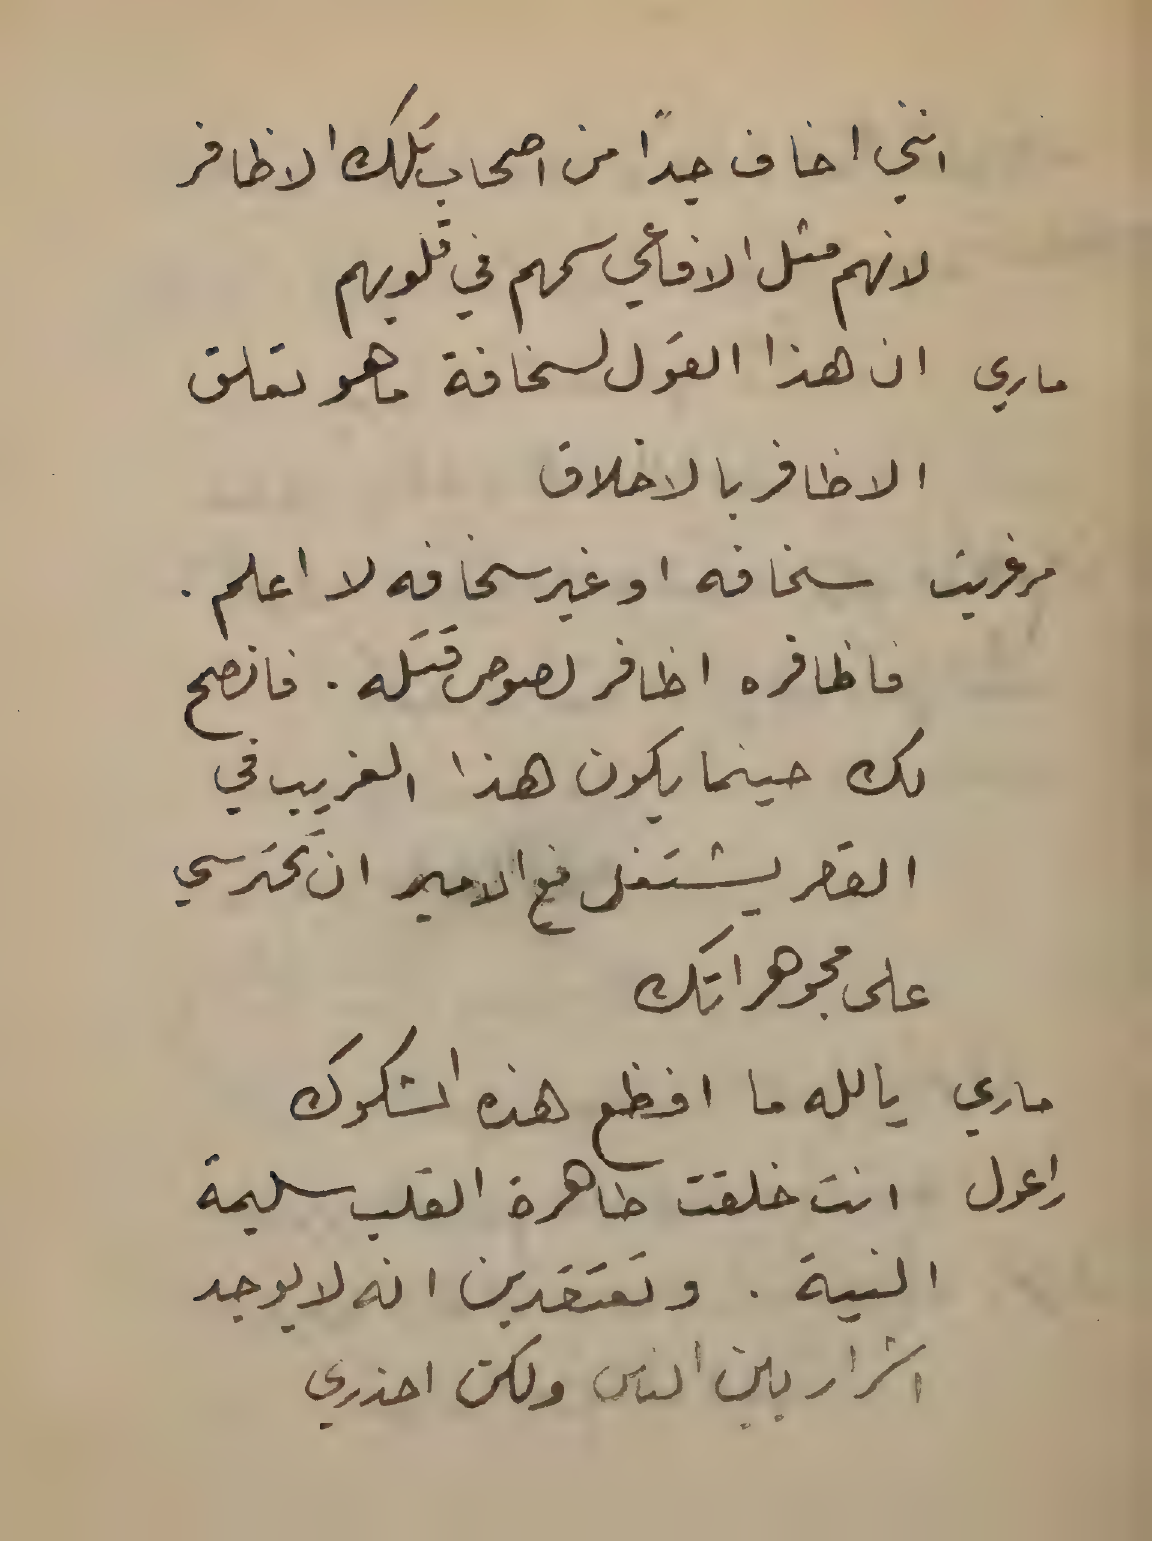 انني اخاف جدًا من اصحاب تلك الاظافر
لانهم مثل الافاعي سمهم في قلوبهم
ماري ان هذا القول لسخافة ما هو تعلق
الاظافر بالاخلاق
مرغريت سخافه او غير سخافه لا اعلم .
فاظافره اظافر لصوص قتله . فانصح
لك حينما يكون هذا الغريب في
القصر يشتغل مع الامير ان تحترسي
على مجوهراتك
ماري يالله ما افظع هذه الشكوك
راعول انت خلقت طاهرة القلب سليمة
النية . وتعتقدين انه لا يوجد
اشرار بين الناس ولكن احذري